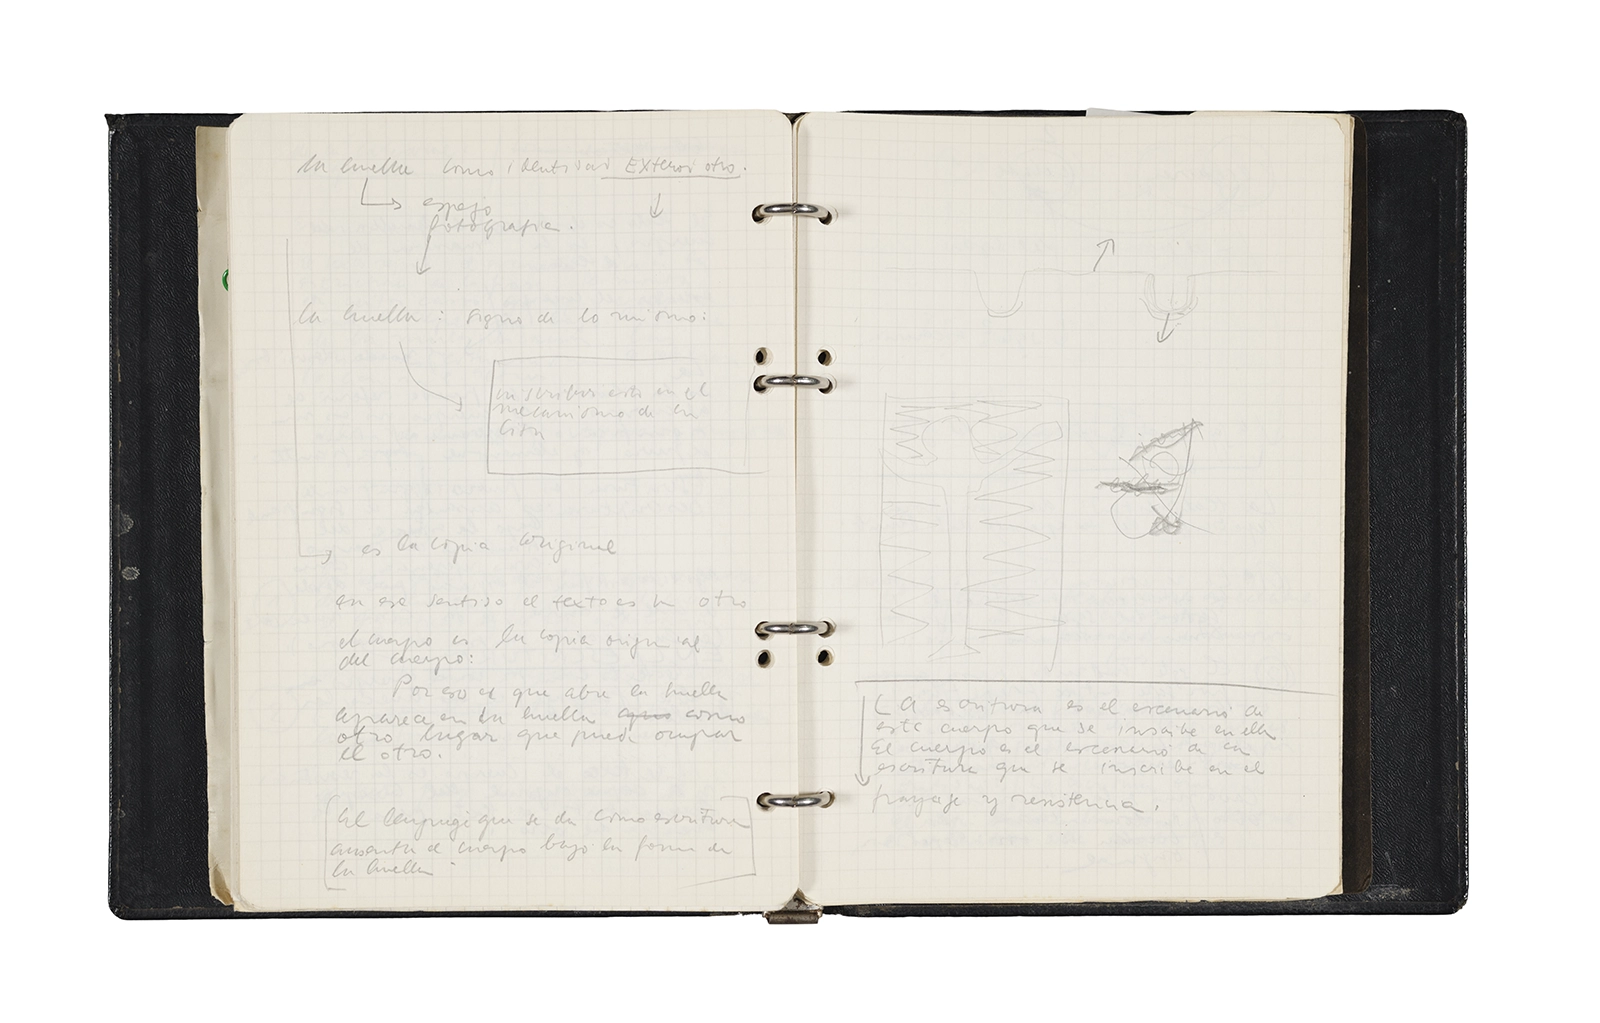 la huella como identidad EXterior otro.
espejo
fotografia.
la huella : signo de lo mismo:
esto en el
mecanismo de la
es la copia original
en ese sentido el texto es lo otro
el cuerpo es la copia original
del cuerpo:
Por eso el que abre la huella
aparece en la huella como
otro lugar que puede ocupar
el otro.
El lenguaje que se da como escritura
ausenta el cuerpo bajo la forma de
la huella
LA escritura es el escenario de
este cuerpo que se inscribe en ella
El cuerpo es el escenario de la
escritura que se inscribe en el
paisaje y resistencia.